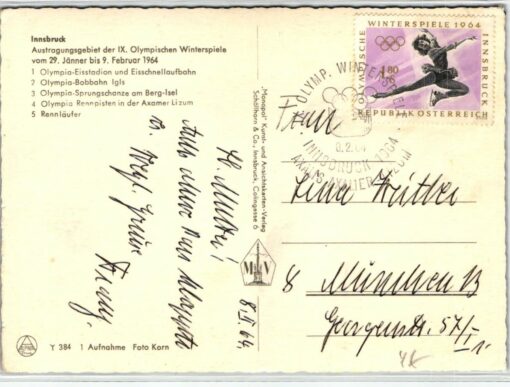 Innsbruck
Austragungsgebiet der IX. Olympischen Winterspiele
vom 29. Jänner bis 9. Februar 1964
1 Olympia-Eisstadion und Eisschnellaufbahn
2 Olympia-Bobbahn Igls
3 Olympia-Sprungschanze am Berg-Isel
4 Olympia Rennpisten in der Axamer Lizum
5 Rennläufer
8.II.64.
Franz
Y 384 1 Aufnahme Foto Korn
"Monopol" Kunst- und Ansichtskarten-Verlag
Schöllhorn & Co., Innsbruck, Colingasse 6
M V
OLYMPISCHE WINTERSPIELE 1964 INNSBRUCK
1.80
REPUBLIK ÖSTERREICH
OLYMP. WINTERSPIELE
8.2.64
INNSBRUCK 1964
Frau
8 München 13
Georgenstr. 57/I